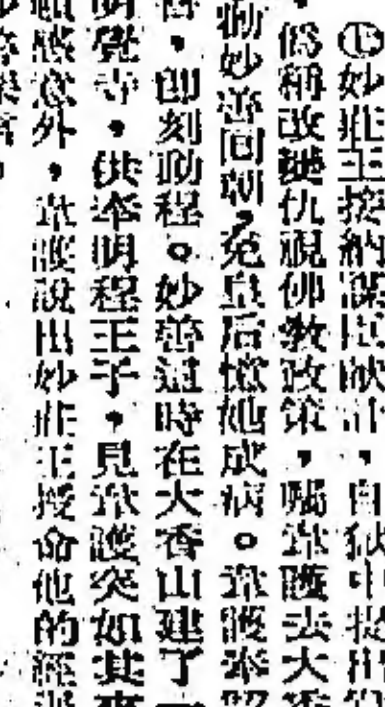 ㊤妙莊王接納謀臣獻計,自獄中提出
偽稱改變仇視佛教政策,囑韋護去大香
勸妙善回朝,免皇后憶她成病。韋護奉照
,即刻動程。妙善這時在大香山建了一
明覺寺,供奉明程王子,見韋護突如其來
頗感意外,韋護說出妙莊王授命他的經過